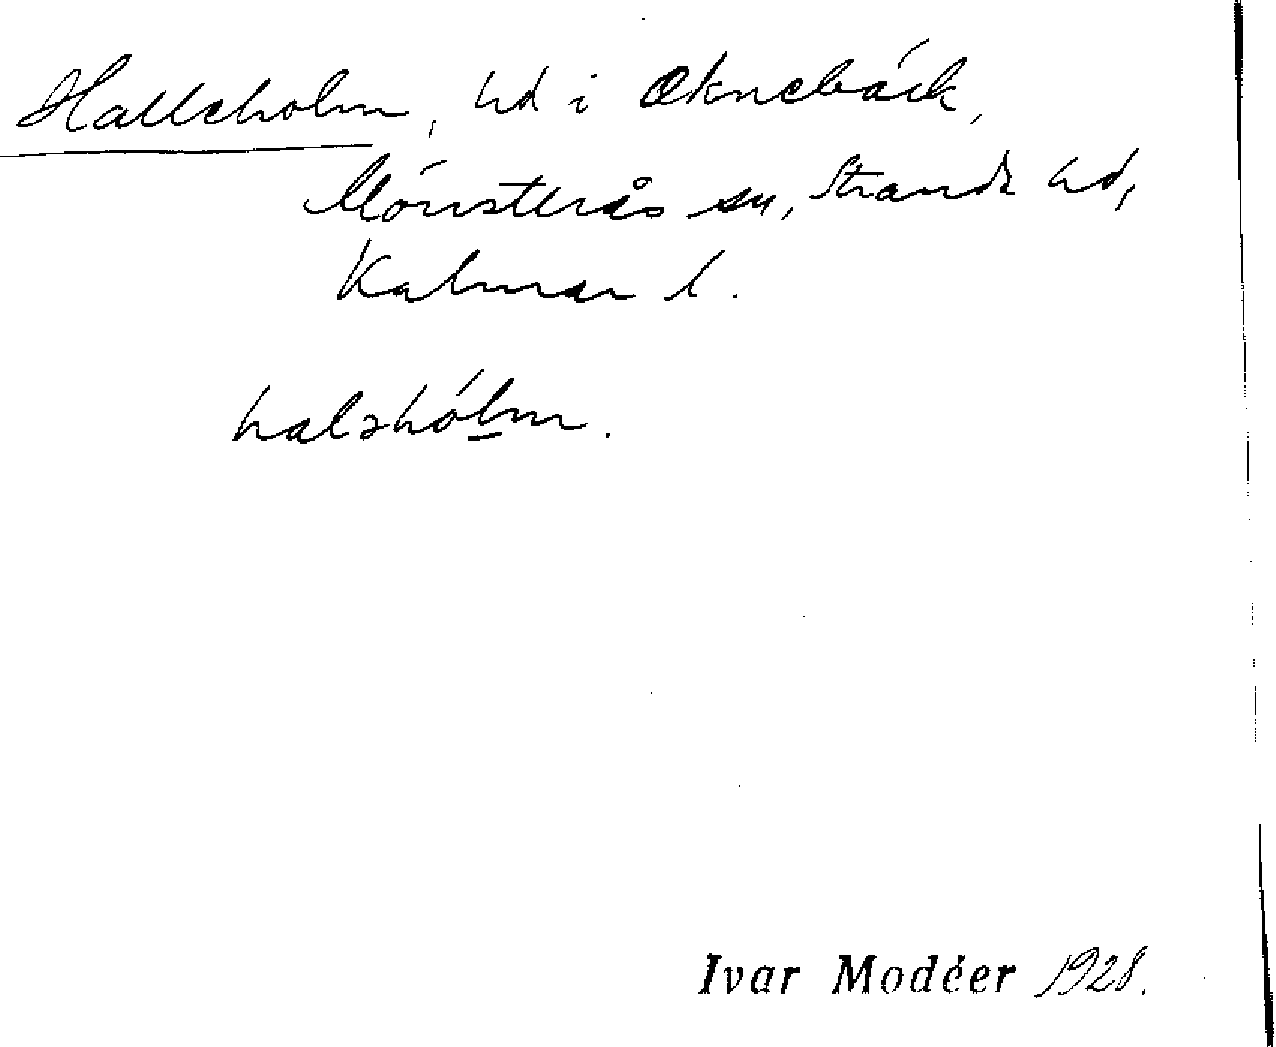 Halleholm, hd i Oknebäck,
Mönsterås sn, Stranda hd,
Kalmar l.
halɘhólm.
Ivar Modéer 1928.